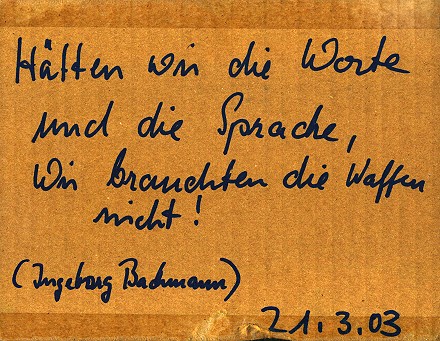 Hätten wir die Worte
und die Sprache,
wir brauchten die Waffen
nicht!
(Ingeborg Bachmann)
21.3.03